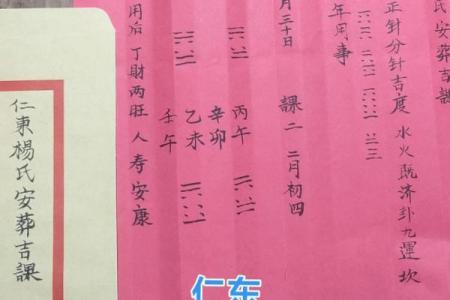 氏安葬吉
正針分針吉度 水火既濟卦九運坎
年用事
月三十日
課二 二月初四
丙午
辛卯
乙未
壬午
用后 丁財兩旺 人壽安康
仁東楊氏安葬吉課
仁东